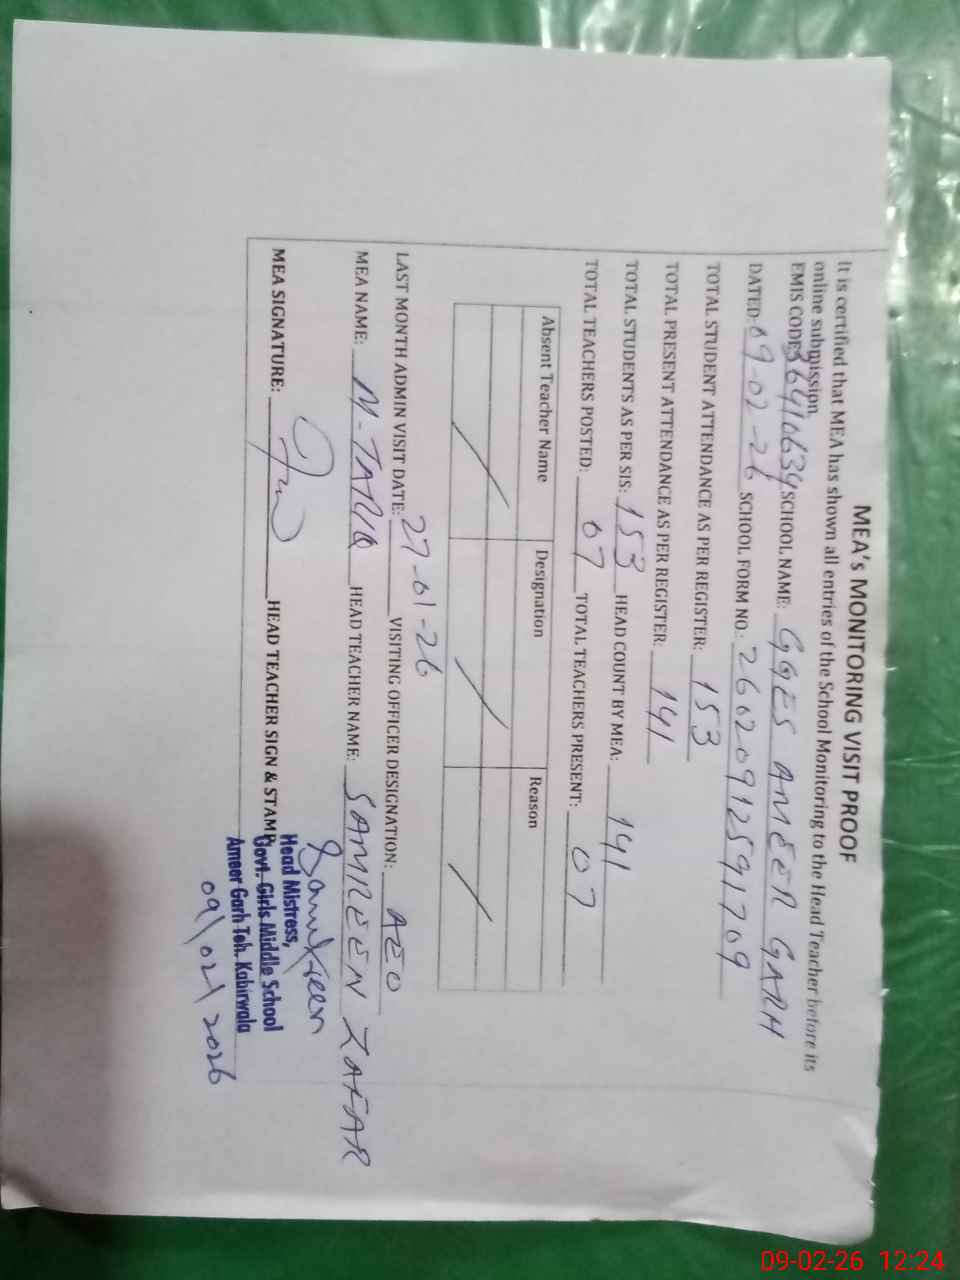 MEA's MONITORING VISIT PROOF
It is certified that MEA has shown all entries of the School Monitoring to the Head Teacher before its
online submission.
EMIS CODE: 36410634 SCHOOL NAME: GGES AMEER GARH
DATED: 09-02-26 SCHOOL FORM NO.: 26620912591709
TOTAL STUDENT ATTENDANCE AS PER REGISTER: 153
TOTAL PRESENT ATTENDANCE AS PER REGISTER: 141
TOTAL STUDENTS AS PER SIS: 153 HEAD COUNT BY MEA: 141
TOTAL TEACHERS POSTED: 07 TOTAL TEACHERS PRESENT: 07
Absent Teacher Name Designation Reason
LAST MONTH ADMIN VISIT DATE: 27-01-26 VISITING OFFICER DESIGNATION: AEO
MEA NAME: M-TARIQ HEAD TEACHER NAME: SAMREEN ZAFAR
MEA SIGNATURE: HEAD TEACHER SIGN & STAMP:
Head Mistress,
Govt. Girls Middle School
Ameer Garh Teh. Kabirwala
09/02/2026
09-02-26 12:24